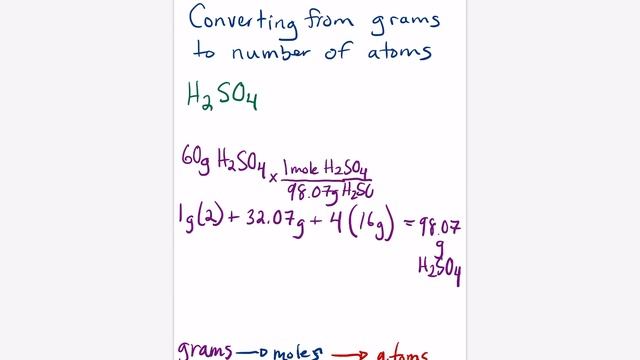 Converting from grams
to number of atoms
H₂SO₄
60g H₂SO₄ × 1mole H₂SO₄
98.07g H₂SO
1g(2) + 32.07g + 4(16g) = 98.07
g
H₂SO₄
grams → moles → atoms